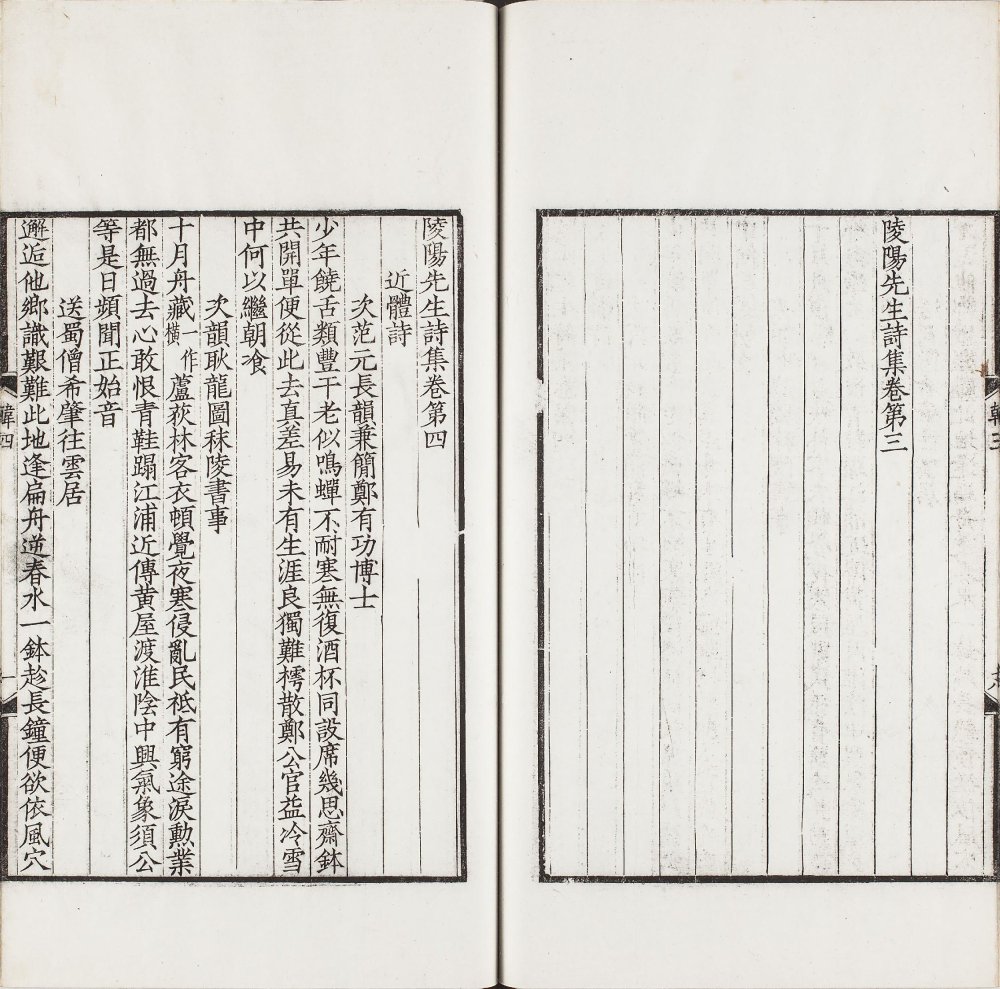 陵陽先生詩集卷第三
韓三
陵陽先生詩集卷第四
近體詩
次范元長韻兼簡鄭有功博士
少年饒舌類豐干老似鳴蟬不耐寒無復酒杯同設席幾思齋鉢
共開單便從此去真差易未有生涯良獨難樗散鄭公官益冷雪
中何以繼朝飡
次韻耿龍圖秣陵書事
十月舟藏一作橫蘆荻林客衣頓覺夜寒侵亂民祗有窮途淚勲業
都無過去心敢恨青鞋蹋江浦近傳黃屋渡淮陰中興氣象須公
等是日頻聞正始音
送蜀僧希肇往雲居
邂逅他鄉識艱難此地逢扁舟逆春水一鉢趁長鐘便欲依風穴
韓四
一